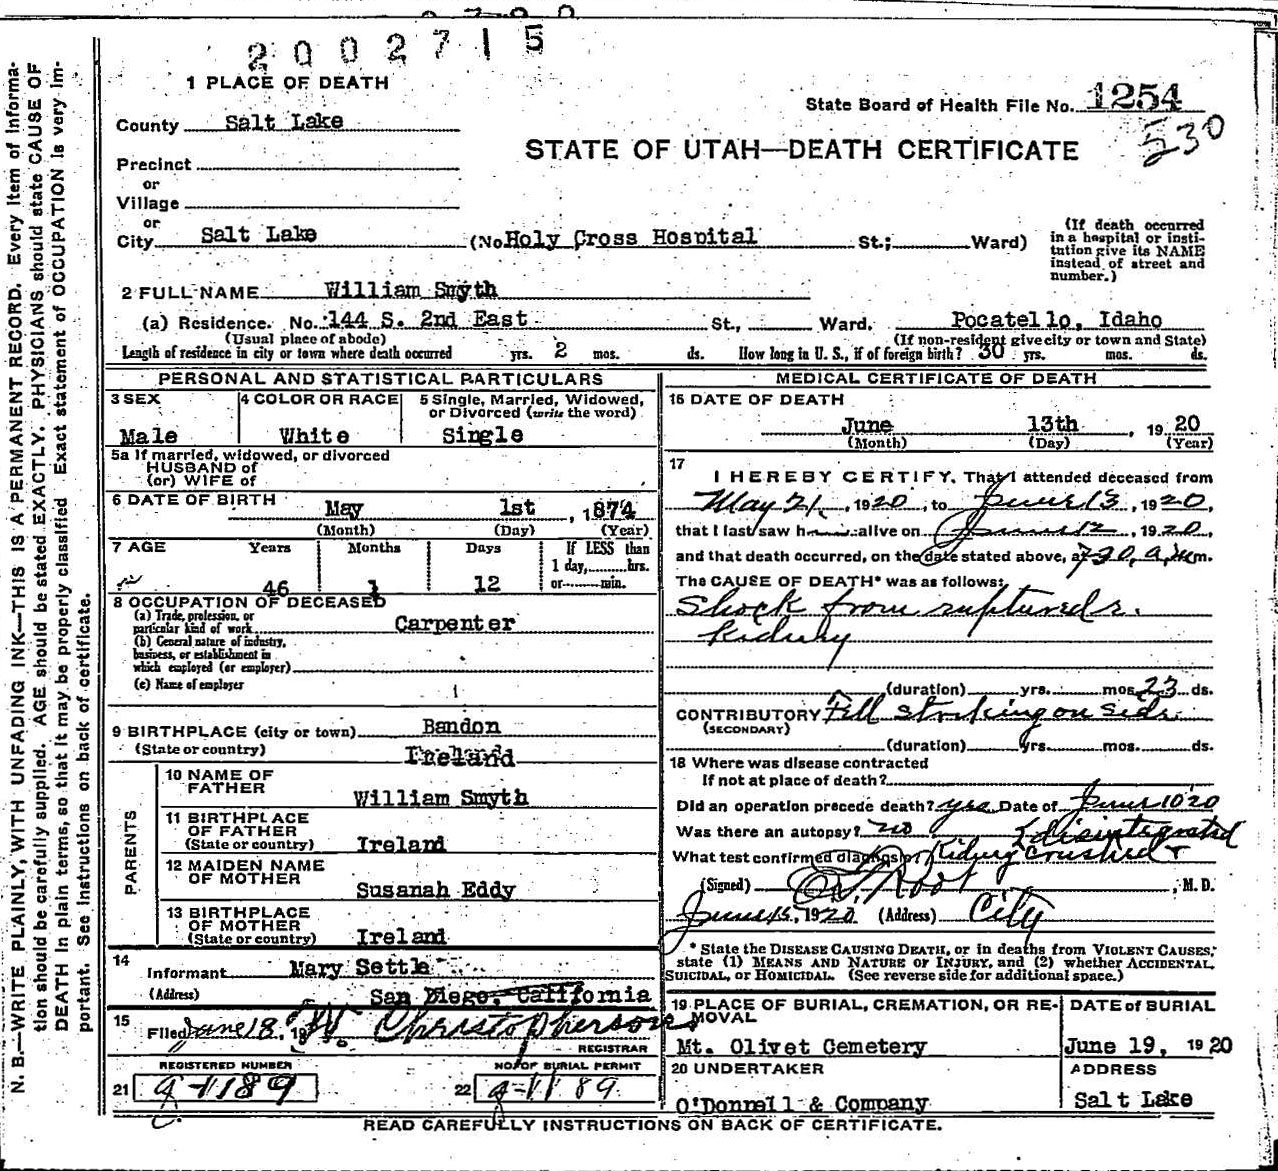 2002715
1 PLACE OF DEATH
State Board of Health File No. 1254
530
County Salt Lake
STATE OF UTAH—DEATH CERTIFICATE
Precinct
or
Village
or
City Salt Lake (No Holy Cross Hospital St.; Ward)
(If death occurred in a hospital or insti-
tution give its NAME
instead of street and
number.)
2 FULL NAME William Smyth
(a) Residence. No. 144 S. 2nd East St., Ward. Pocatello, Idaho
(Usual place of abode) (If non-resident give city or town and State)
Length of residence in city or town where death occurred yrs. 2 mos. ds. How long in U. S., if of foreign birth? 30 yrs. mos. ds.
PERSONAL AND STATISTICAL PARTICULARS
3 SEX 4 COLOR OR RACE 5 Single, Married, Widowed,
or Divorced (write the word)
Male White Single
5a If married, widowed, or divorced
HUSBAND of
(or) WIFE of
6 DATE OF BIRTH May 1st, 1874
(Month) (Day) (Year)
7 AGE Years Months Days If LESS than
1 day, hrs.
46 1 12 or min.
8 OCCUPATION OF DECEASED
(a) Trade, profession, or
particular kind of work Carpenter
(b) General nature of industry,
business, or establishment in
which employed (or employer)
(c) Name of employer
9 BIRTHPLACE (city or town) Bandon
(State or country) Ireland
PARENTS
10 NAME OF
FATHER William Smyth
11 BIRTHPLACE
OF FATHER
(State or country) Ireland
12 MAIDEN NAME
OF MOTHER Susanah Eddy
13 BIRTHPLACE
OF MOTHER
(State or country) Ireland
14
Informant Mary Settle
(Address) San Diego, California
15
Filed June 18, 19 Christopherson
REGISTRAR
REGISTERED NUMBER NO. OF BURIAL PERMIT
21 g-1189 22 g-1189
MEDICAL CERTIFICATE OF DEATH
16 DATE OF DEATH
June 13th, 1920
(Month) (Day) (Year)
17
I HEREBY CERTIFY, That I attended deceased from
May 21, 1920, to June 13, 1920,
that I last saw h alive on June 12, 1920,
and that death occurred, on the date stated above, at 7:30 a.m.
The CAUSE OF DEATH* was as follows:
Shock from ruptured r.
Kidney
(duration) yrs. mos. 23 ds.
CONTRIBUTORY Fell striking on side
(SECONDARY)
(duration) yrs. mos. ds.
18 Where was disease contracted
If not at place of death?
Did an operation precede death? yes Date of June 10 20
Was there an autopsy? no disintegrated
What test confirmed diagnosis? Kidney crushed +
(Signed) Root, M. D.
June 15, 1920 (Address) City
* State the DISEASE CAUSING DEATH, or in deaths from VIOLENT CAUSES,
state (1) MEANS AND NATURE OF INJURY, and (2) whether ACCIDENTAL,
SUICIDAL, OR HOMICIDAL. (See reverse side for additional space.)
19 PLACE OF BURIAL, CREMATION, OR RE-
MOVAL DATE of BURIAL
Mt. Olivet Cemetery June 19, 1920
20 UNDERTAKER ADDRESS
O'Donnell & Company Salt Lake
READ CAREFULLY INSTRUCTIONS ON BACK OF CERTIFICATE.
N. B.—WRITE PLAINLY, WITH UNFADING INK—THIS IS A PERMANENT RECORD. Every item of informa-
tion should be carefully supplied. AGE should be stated EXACTLY. PHYSICIANS should state CAUSE OF
DEATH in plain terms, so that it may be properly classified. Exact statement of OCCUPATION is very im-
portant. See instructions on back of certificate.